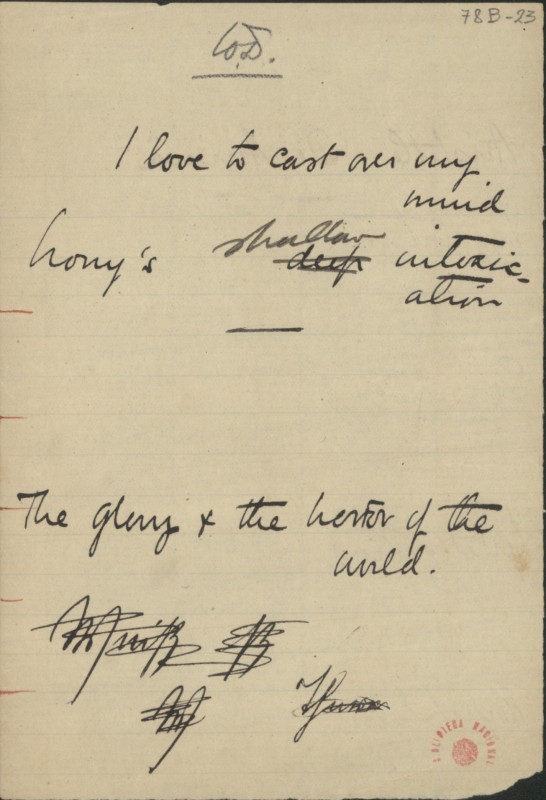 78B-23
W.D.
I love to cast over my
mind
Irony's shallow deep intoxic-
ation
The glory & the horror of the
world.
BIBLIOTECA NACIONAL